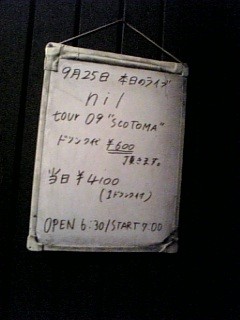 9月25日 本日のライブ
nil
tour 09 "SCOTOMA"
ドリンク代 ¥600
頂きます。
当日 ¥4100
(1ドリンク付)
OPEN 6:30/START 7:00